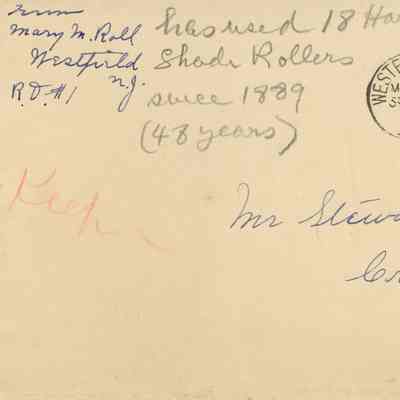 From
Mary M. Roll
Westfield
N.J.
R.D. #1
has used 18 Har
Shade Rollers
since 1889
(48 years)
WESTF
Keep
Mr Stewa